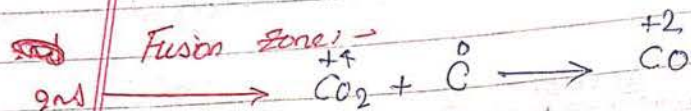 Fusion zone:-
2nd → +4 CO2 + 0 C → +2 CO